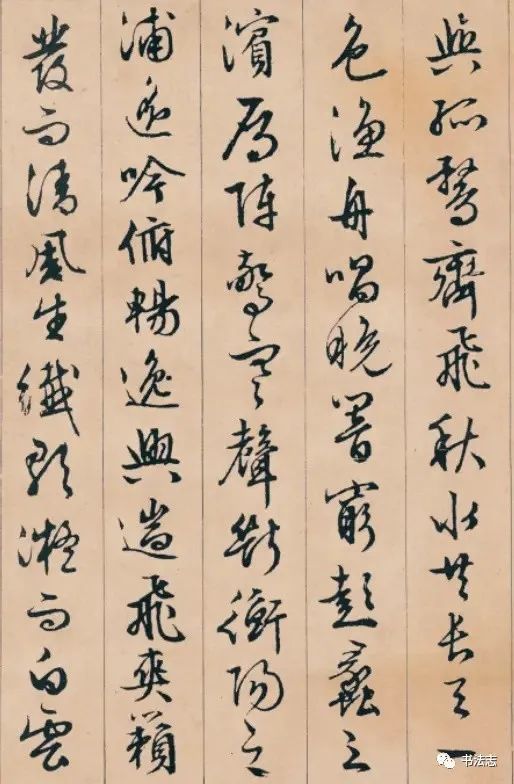 與孤鶩齊飛秋水共長天一
色漁舟唱晚響窮彭蠡之
濱鴈陣驚寒聲斷衡陽之
浦遥吟俯暢逸興遄飛爽籟
發而清風生纖歌凝而白雲
书法志